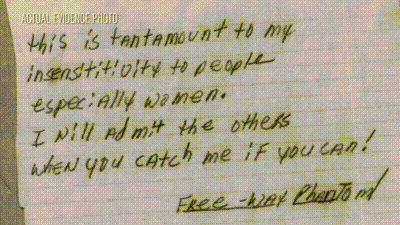 ACTUAL EVIDENCE PHOTO
this is tantamount to my
insenstitivity to people
especially women.
I will admit the others
WHEN you catch me if you can!
FREE-WAY PhanTom!